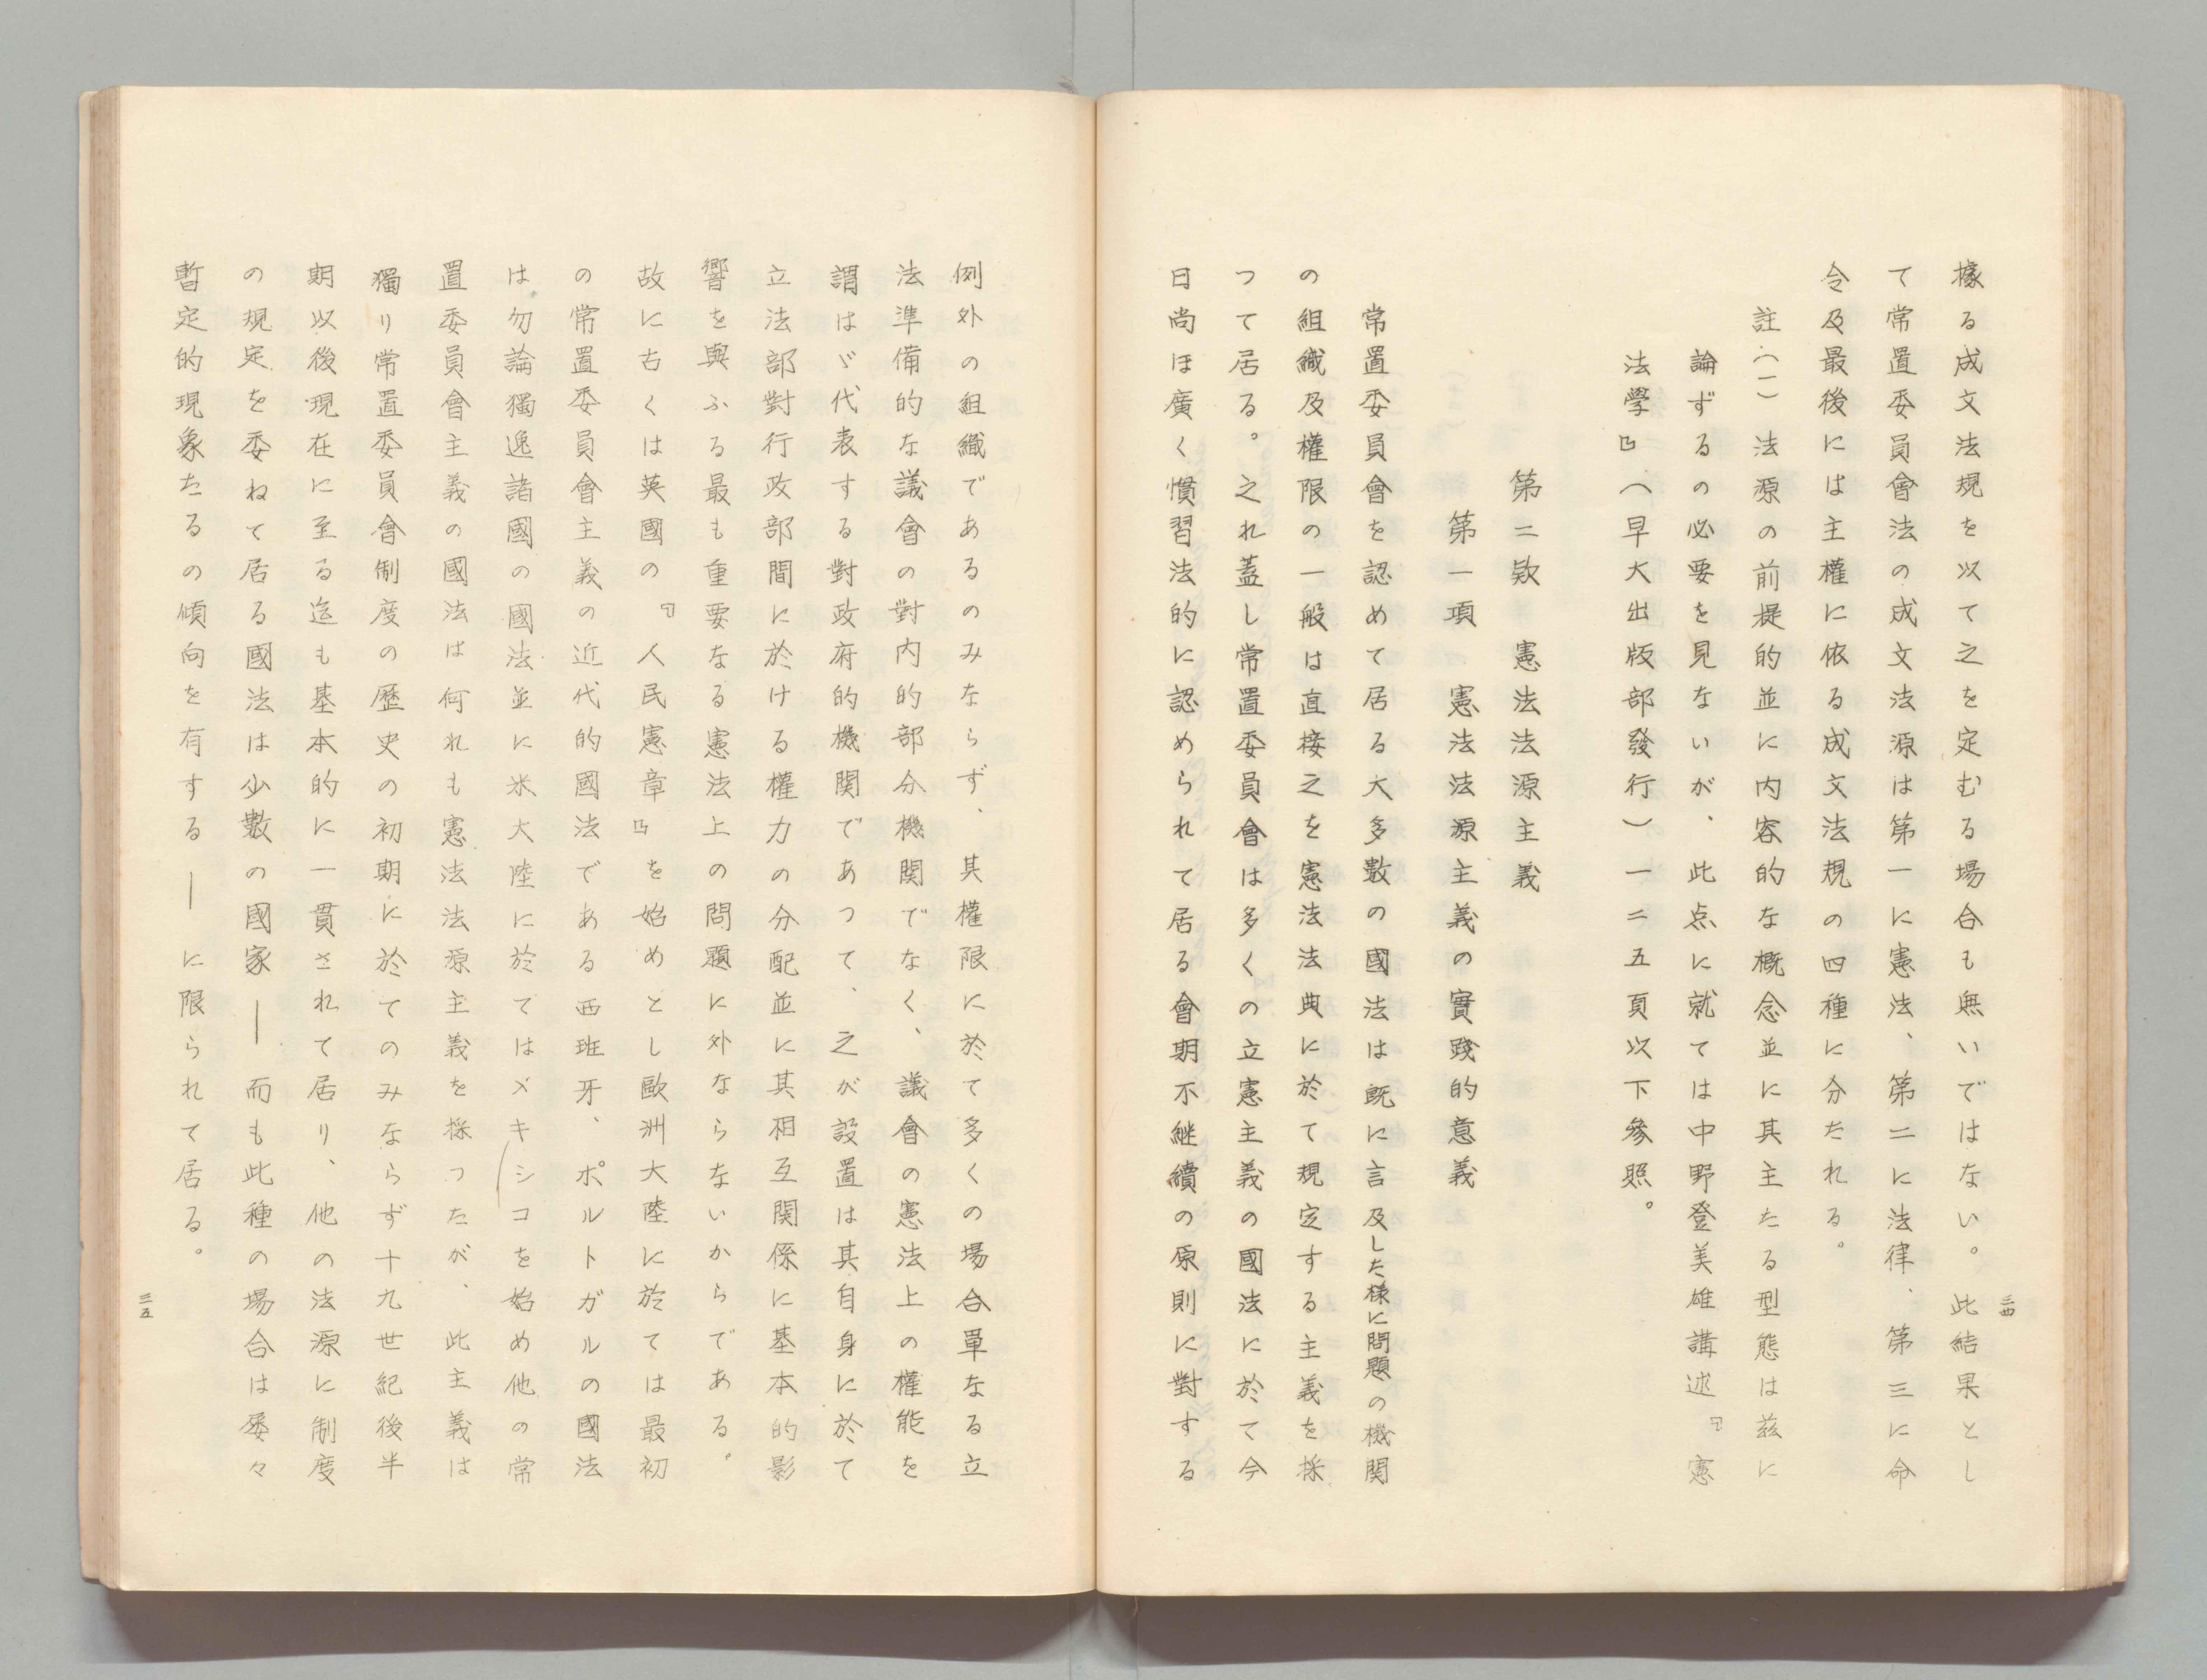 據る成文法規を以て之を定むる場合も無いではない。此結果とし
て常置委員會法の成文法源は第一に憲法、第二に法律、第三に命
令及最後には主權に依る成文法規の四種に分たれる。
註(一) 法源の前提的並に内容的な概念並に其主たる型態は玆に
論ずるの必要を見ないが、此点に就ては中野登美雄講述。『憲
法學』(早大出版部發行)一二五頁以下參照。
第二欵 憲法法源主義
第一項 憲法法源主義の實踐的意義
常置委員會を認めて居る大多數の國法は既に言及した樣に問題の機関
の組織及權限の一般は直接之を憲法法典に於て規定する主義を採
つて居る。之れ蓋し常置委員會は多くの立憲主義の國法に於て今
日尚ほ廣く慣習法的に認められて居る會期不継續の原則に對する
三四
例外の組織であるのみならず、其權限に於て多くの場合單なる立
法準備的な議會の對内的部分機関でなく、議會の憲法上の權能を
謂はゞ代表する對政府的機関であつて、之が設置は其自身に於て
立法部對行政部間に於ける權力の分配並に其相互関係に基本的影
響を與ふる最も重要なる憲法上の問題に外ならないからである。
故に古くは英國の『人民憲章』を始めとし歐洲大陸に於ては最初
の常置委員會主義の近代的國法である西班牙、ポルトガルの國法
は勿論獨逸諸國の國法並に米大陸に於てはメキシコを始め他の常
置委員會主義の國法は何れも憲法法源主義を採つたが、此主義は
獨り常置委員會制度の歴史の初期に於てのみならず十九世紀後半
期以後現在に至る迄も基本的に一貫されて居り、他の法源に制度
の規定を委ねて居る國法は少數の國家―而も此種の場合は屡々
暫定的現象たるの傾向を有する―に限られて居る。
三五